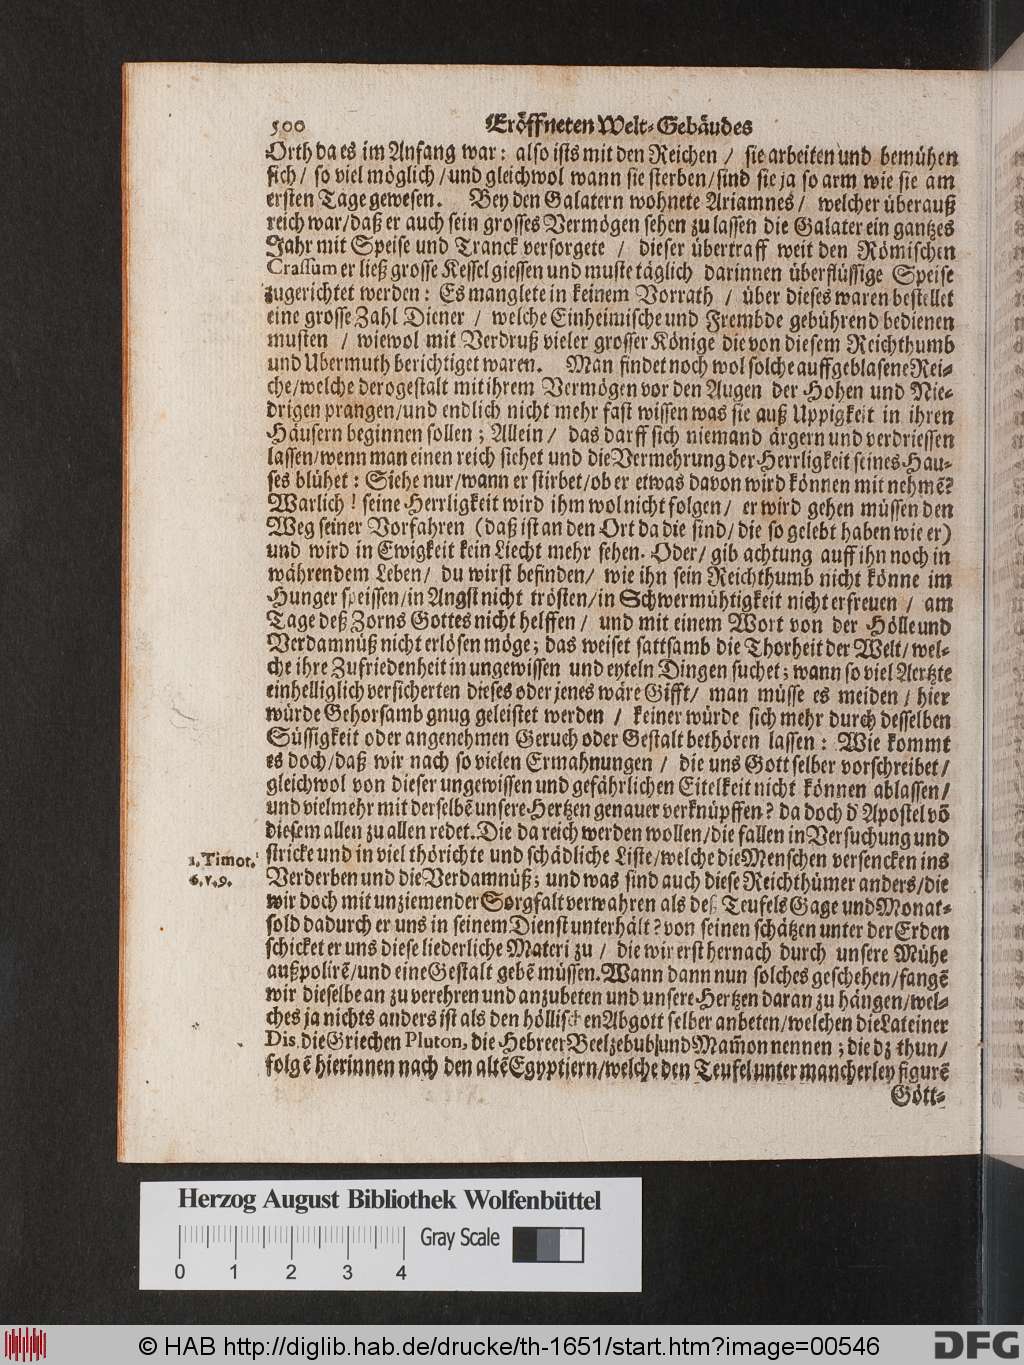 500 Eröffneten Welt-Gebäudes
Orth da es im Anfang war: also ists mit den Reichen / sie arbeiten und bemühen
sich / so viel möglich / und gleichwol wann sie sterben / sind sie ja so arm wie sie am
ersten Tage gewesen. Bey den Galatern wohnete Ariamnes / welcher überauß
reich war / daß er auch sein grosses Vermögen sehen zu lassen die Galater ein gantzes
Jahr mit Speise und Tranck versorgete / dieser übertraff weit den Römischen
Crassum er ließ grosse Kessel giessen und muste täglich darinnen überflüssige Speise
zugerichtet werden: Es manglete in keinem Vorrath / über dieses waren bestellet
eine grosse Zahl Diener / welche Einheimische und Frembde gebührend bedienen
musten / wiewol mit Verdruß vieler grosser Könige die von diesem Reichthumb
und Ubermuth berichtiget waren. Man findet noch wol solche auffgeblasene Rei-
che / welche derogestalt mit ihrem Vermögen vor den Augen der Hohen und Nie-
drigen prangen / und endlich nicht mehr fast wissen was sie auß Uppigkeit in ihren
Häusern beginnen sollen; Allein / das darff sich niemand ärgern und verdriessen
lassen / wenn man einen reich siehet und die Vermehrung der Herrligkeit seines Hau-
ses blühet: Siehe nur / wann er stirbet / ob er etwas davon wird können mit nehmē?
Warlich! seine Herrligkeit wird ihm wol nicht folgen / er wird gehen müssen den
Weg seiner Vorfahren (daß ist an den Ort da die sind / die so gelebt haben wie er)
und wird in Ewigkeit kein Liecht mehr sehen. Oder / gib achtung auff ihn noch in
währendem Leben / du wirst befinden / wie ihn sein Reichthumb nicht könne im
Hunger speissen / in Angst nicht trösten / in Schwermühtigkeit nicht erfreuen / am
Tage deß Zorns Gottes nicht helffen / und mit einem Wort von der Hölle und
Verdamnüß nicht erlösen möge; das weiset sattsamb die Thorheit der Welt / wel-
che ihre Zufriedenheit in ungewissen und eyteln Dingen suchet; wann so viel Aertzte
einhelliglich versicherten dieses oder jenes wäre Gifft / man müsse es meiden / hier
würde Gehorsamb gnug geleistet werden / keiner würde sich mehr durch desselben
Süssigkeit oder angenehmen Geruch oder Gestalt bethören lassen: Wie kommt
es doch / daß wir nach so vielen Ermahnungen / die uns Gott selber vorschreibet /
gleichwol von dieser ungewissen und gefährlichen Eitelkeit nicht können ablassen /
und vielmehr mit derselbē unsere Hertzen genauer verknüpffen? da doch d' Apostel vō
diesem allen zu allen redet. Die da reich werden wollen / die fallen in Versuchung und
1. Timot. stricke und in viel thörichte und schädliche Liste / welche die Menschen versencken ins
6. v. 9. Verderben und die Verdamnüß; und was sind auch diese Reichthümer anders / die
wir doch mit unziemender Sorgfalt verwahren als deß Teufels Gage und Monat-
sold dadurch er uns in seinem Dienst unterhält? von seinen schätzen unter der Erden
schicket er uns diese liederliche Materi zu / die wir erst hernach durch unsere Mühe
außpolirē / und eine Gestalt gebē müssen. Wann dann nun solches geschehen / fangē
wir dieselbe an zu verehren und anzubeten und unsere Hertzen daran zu hängen / wel-
ches ja nichts anders ist als den höllischen Abgott selber anbeten / welchen die Lateiner
Dis, die Griechen Pluton, die Hebreer Beelzebub und Mam̄on nennen; die dz thun /
folgē hierinnen nach den altē Egyptiern / welche den Teufel unter mancherley figurē
Gött-
Herzog August Bibliothek Wolfenbüttel
Gray Scale
0 1 2 3 4
© HAB http://diglib.hab.de/drucke/th-1651/start.htm?image=00546
DFG